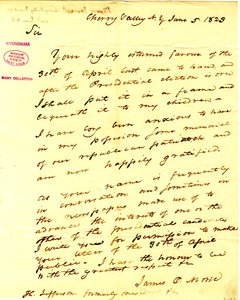 Cherry Valley N.Y June 5. 1823
Sir
Your highly esteemed favour of the
30th of April last came to hand, and
after the Presidential election is over
I shall put it in a frame and
bequeath it to my children –
I have long been anxious to have
in my possession some memorial
of our republican patriarch and
am now highly gratified.
As your name is frequently
in conversation and sometimes in
the newspapers made use of to
advance the interest of one or the
other of the presidential candidates
I write you for permission to make
public your letter of the 30th of April
I have the honour to be
with the greatest respect
James O. Morse
Th. Jefferson formerly